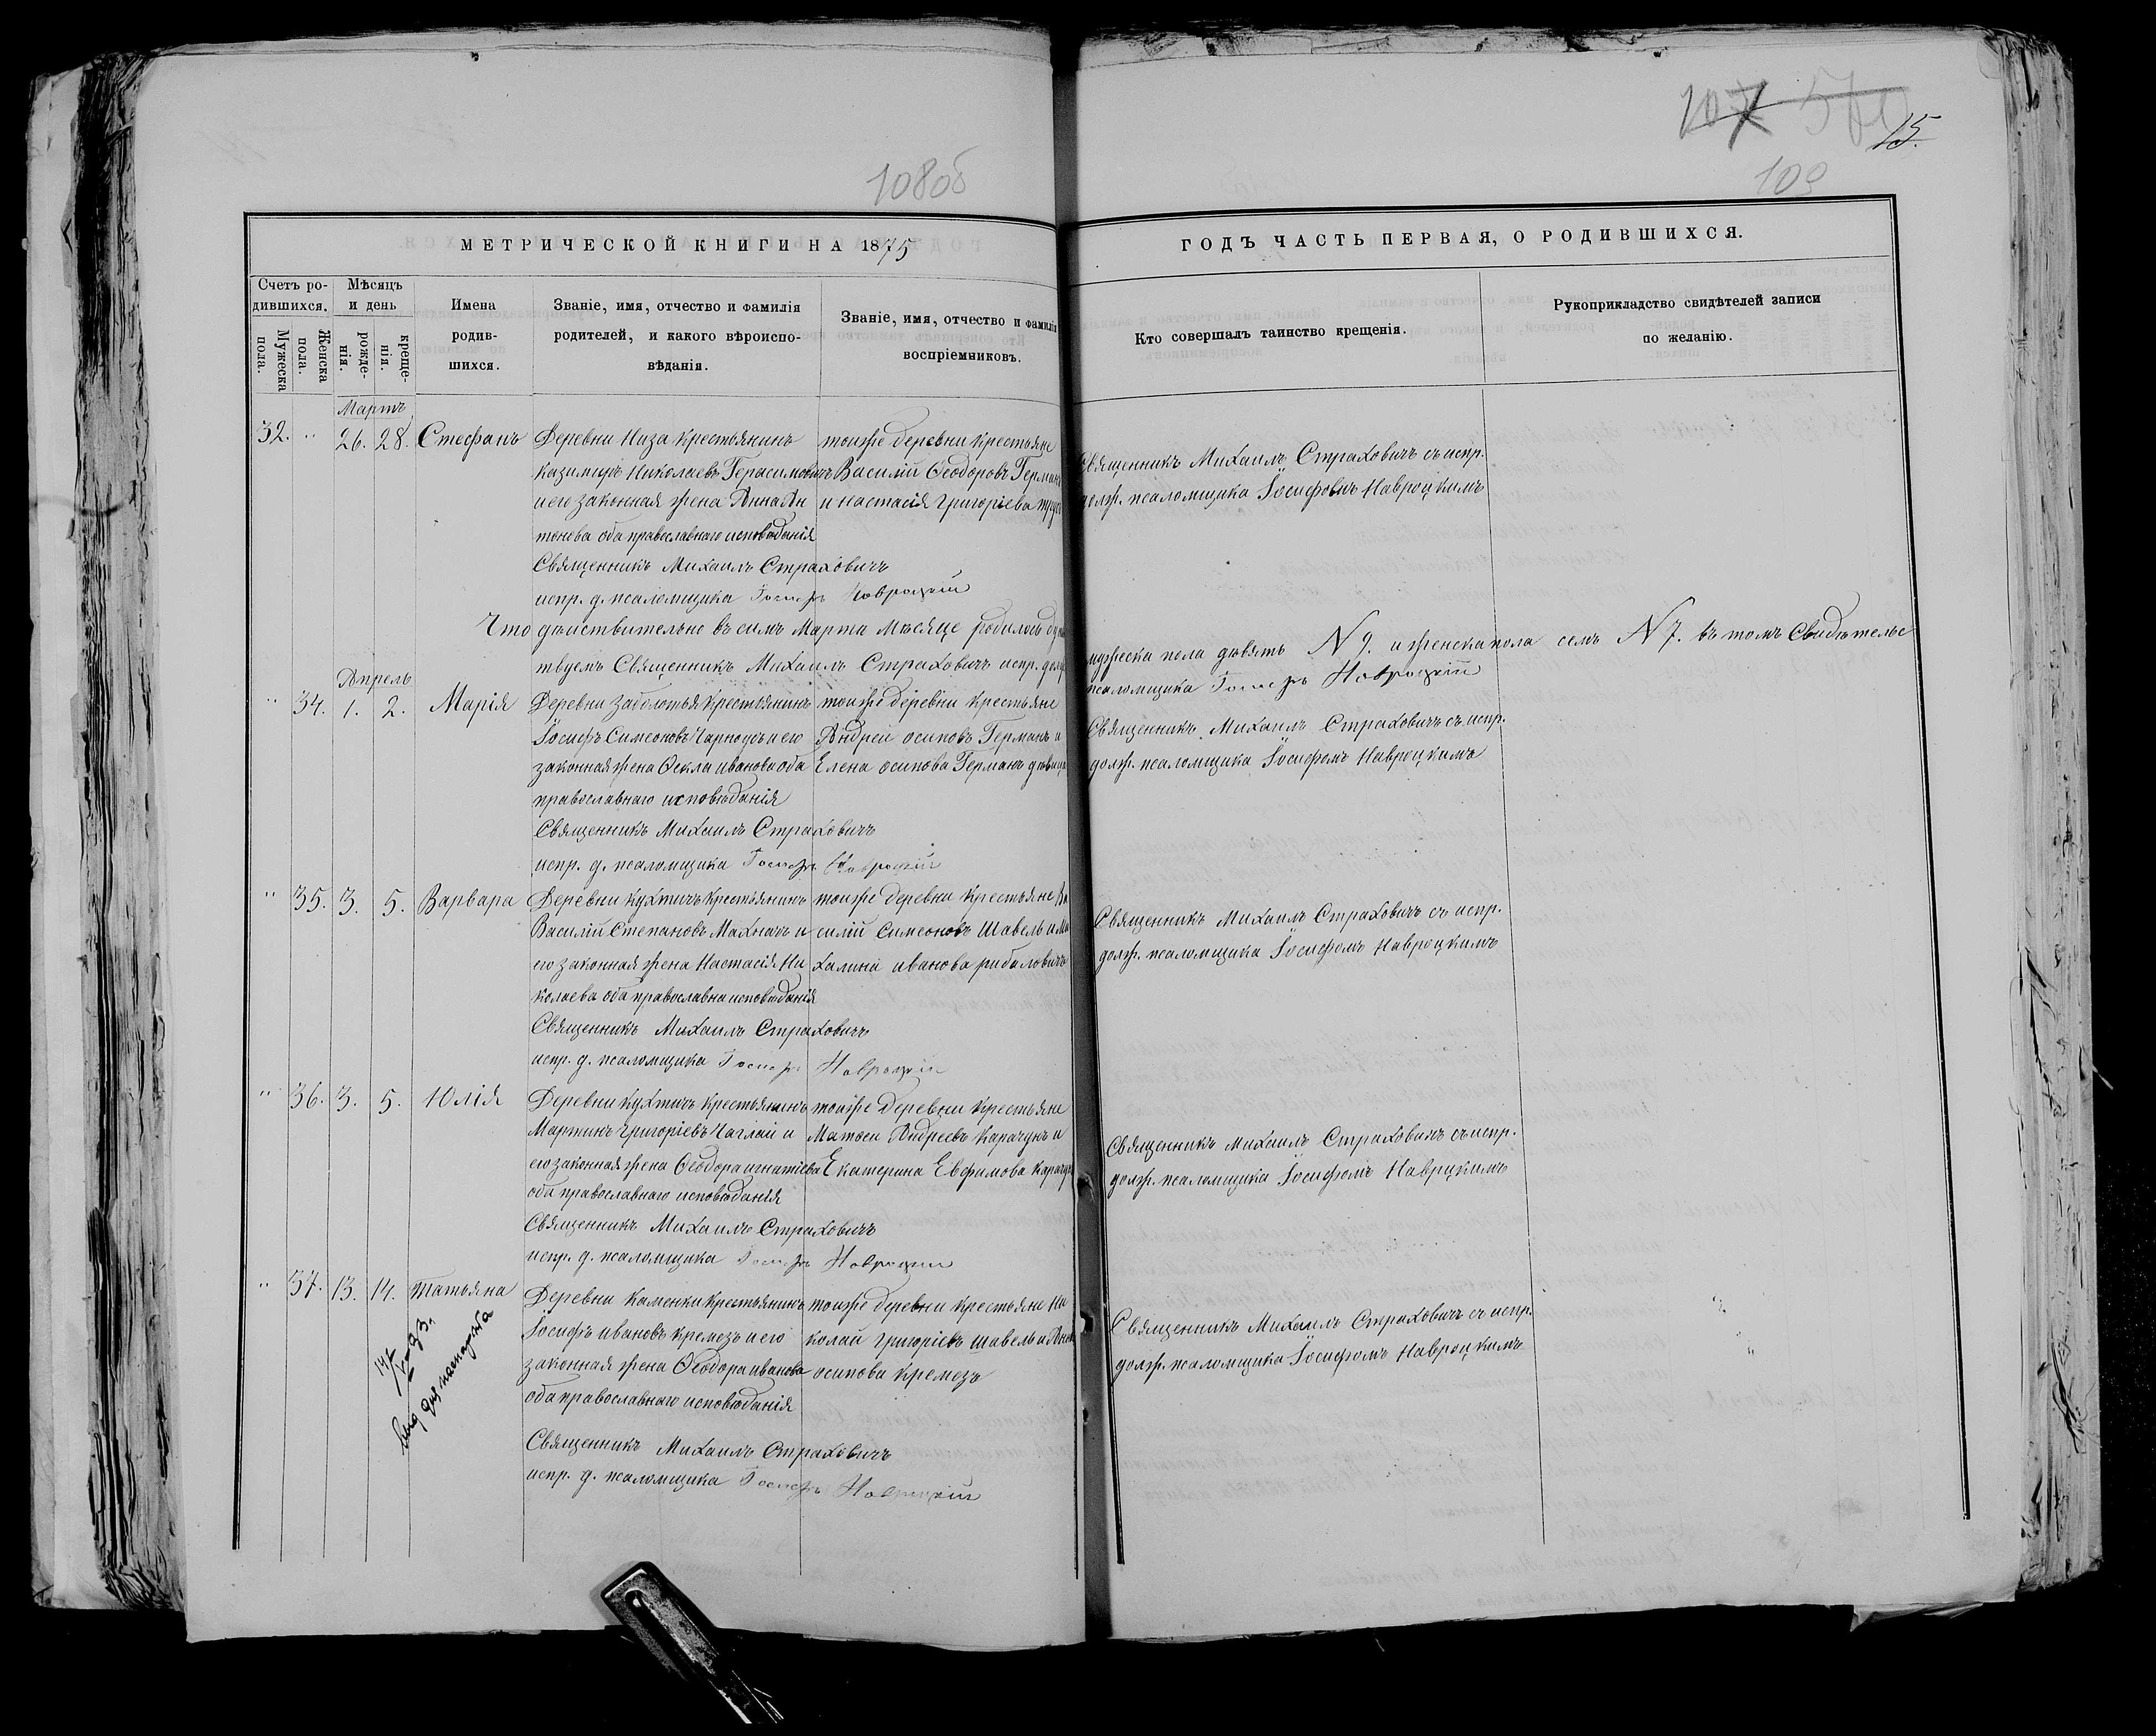 108об
15.
109
МЕТРИЧЕСКОЙ КНИГИ НА 1875
ГОДЪ ЧАСТЬ ПЕРВАЯ, О РОДИВШИХСЯ.
Счетъ ро-
дившихся.
Мужеска
пола.
Женска
пола.
Мѣсяцъ
и день
рожде-
нія.
креще-
нія.
Имена
родив-
шихся.
Званіе, имя, отчество и фамилія
родителей, и какого вѣроиспо-
вѣданія.
Званіе, имя, отчество и фамилія
воспріемниковъ.
Кто совершалъ таинство крещенія.
Рукоприкладство свидѣтелей записи
по желанію.
Мартъ
32. " 26. 28. Стефанъ
Деревни Низа крестьянинъ
казимиръ Николаевъ Герасимовичъ
и его законная жена Анна Ан
тонова оба православнаго исповѣданія
Священникъ Михаилъ Страховичъ
испр. д. псаломщика Іосифъ Навроцкій
тойже деревни крестьяне
Василій Ѳеодоровъ Герман
и Настасія Григоріева
Священникъ Михаилъ Страховичъ съ испр.
долж. псаломщика Іосифовъ Навроцкимъ
Что дѣйствительно въ семъ Марта Мѣсяце родилось
мужеска пола девять N 9. и женска пола семь N 7. въ томъ Свидѣтельс
твуемъ Священникъ Михаилъ Страховичъ испр. долж
псаломщика Іосифъ Навроцкій
Апрель
" 34. 1. 2. Марія
Деревни Заболотья крестьянинъ
Іосифъ Симеоновъ Чарноусъ и его
законная жена Ѳекла иванова оба
православнаго исповѣданія
Священникъ Михаилъ Страховичъ
испр. д. псаломщика Іосифъ Навроцкій
тойже деревни крестьяне
Андрей осиповъ Германъ и
Елена осипова Германъ девица
Священникъ Михаилъ Страховичъ съ испр.
долж. псаломщика Іосифомъ Навроцкимъ
" 35. 3. 5. Варвара
Деревни Кухтичъ крестьянинъ
Василій Степановъ Махначъ и
его законная жена Настасія Ни
колаева оба православна исповѣданія
Священникъ Михаилъ Страховичъ
испр. д. псаломщика Іосифъ Навроцкій
тойже деревни крестьяне Ва
силій Симеоновъ Шавель и Ми
халина иванова рибаловичъ
Священникъ Михаилъ Страховичъ съ испр.
долж. псаломщика Іосифомъ Навроцкимъ
" 36. 3. 5. Юлія
Деревни Кухтичъ крестьянинъ
Мартинъ григоріевъ Чаглай и
его законная жена Ѳеодора игнатіева
оба православнаго исповѣданія
Священникъ Михаилъ Страховичъ
испр. д. псаломщика Іосифъ Навроцкій
тойже деревни крестьяне
Матѳей Андреевъ Карачунъ и
Екатерина Евфимова Карачун
Священникъ Михаилъ Страховичъ съ испр.
долж. псаломщика Іосифомъ Наврцкимъ
" 37. 13. 14. Татьяна
Деревни Каменки крестьянинъ
Іосифъ ивановъ кремезъ и его
законная жена Ѳеодора иванова
оба православнаго исповѣданія
Священникъ Михаилъ Страховичъ
испр. д. псаломщика Іосифъ Навроцкій
тойже деревни крестьяне Ни
колай григоріевъ шавель и Анна
осипова кремезъ
Священникъ Михаилъ Страховичъ съ испр.
долж. псаломщика Іосифомъ Навроцкимъ